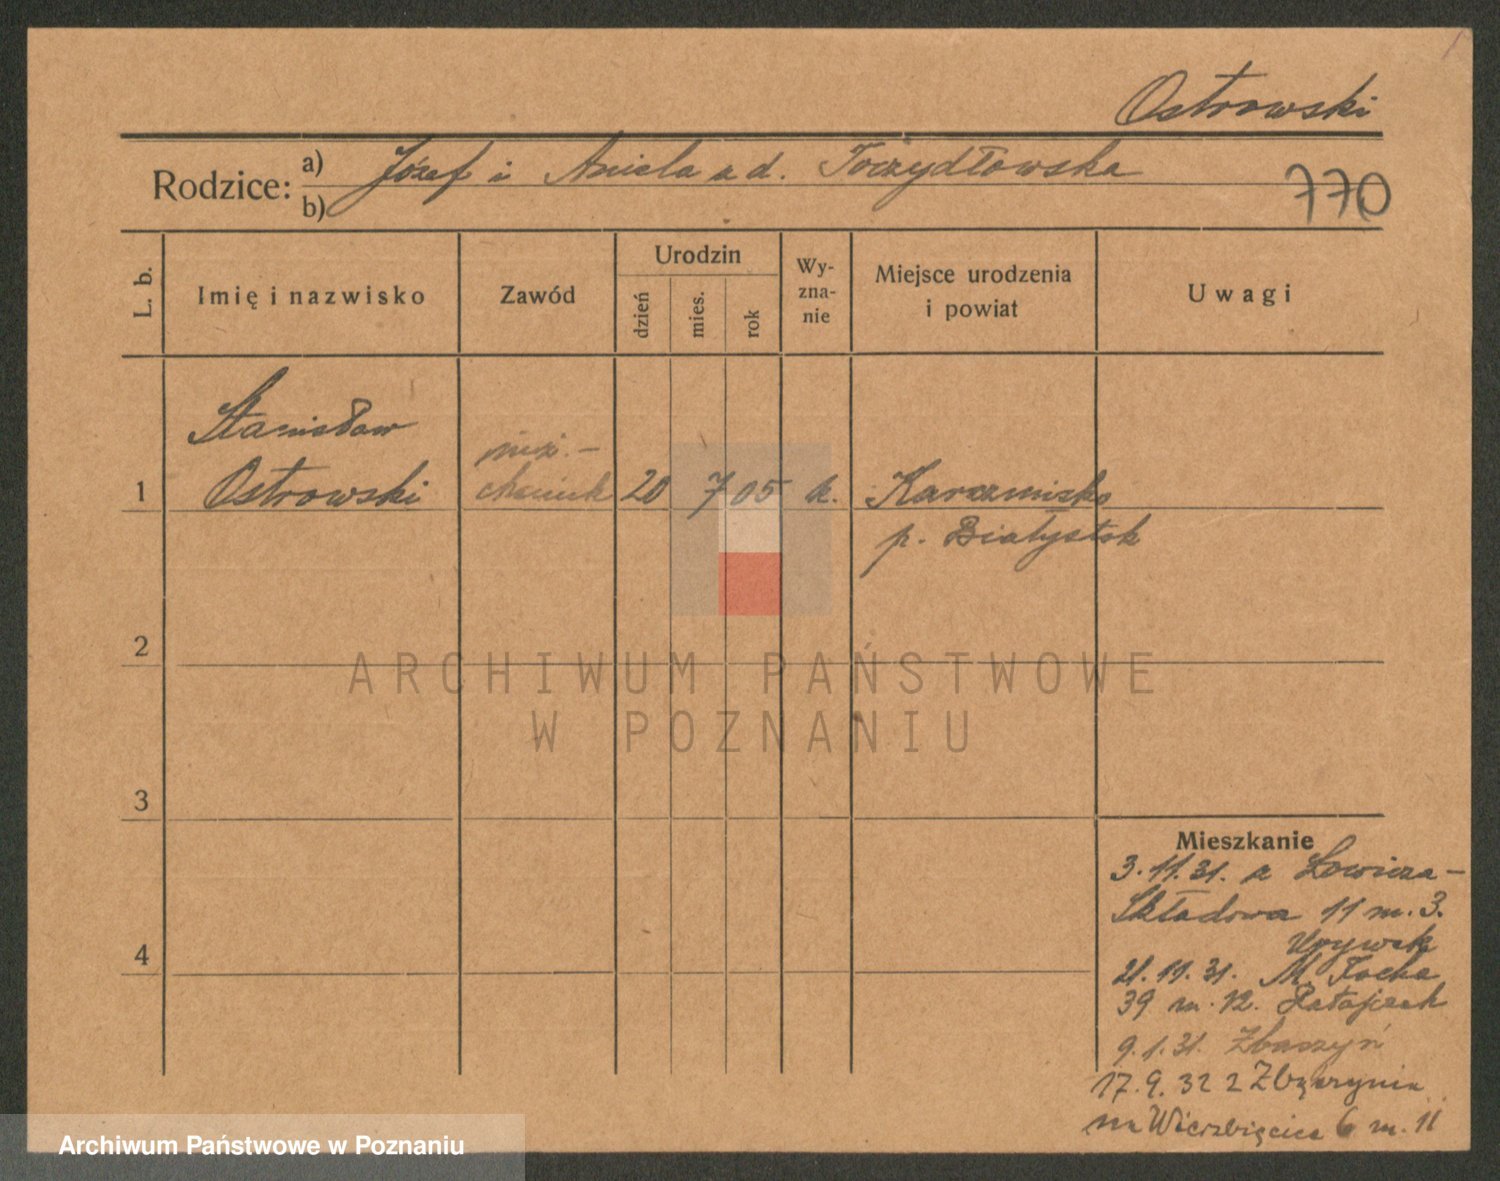 Ostrowski
Rodzice: a) Józef i Aniela z d. Toczydłowska
b)
770
L. b.
Imię i nazwisko
Zawód
Urodzin
dzień
mies.
rok
Wy-
zna-
nie
Miejsce urodzenia
i powiat
Uwagi
Stanisław
1 Ostrowski
chanik 20 7 05 k. Karczmisko
p. Białystok
2
ARCHIWUM PAŃSTWOWE
W POZNANIU
3
4
Mieszkanie
3.11.31. z Łowicza-
Składowa 11 m. 3.
21.11.31. M. Focha
39 m. 12. Ratajczak
9.1.31. Zbąszyń
17.9.32 z Zbąszynia
na Wierzbięcice 6 m. 11
Archiwum Państwowe w Poznaniu